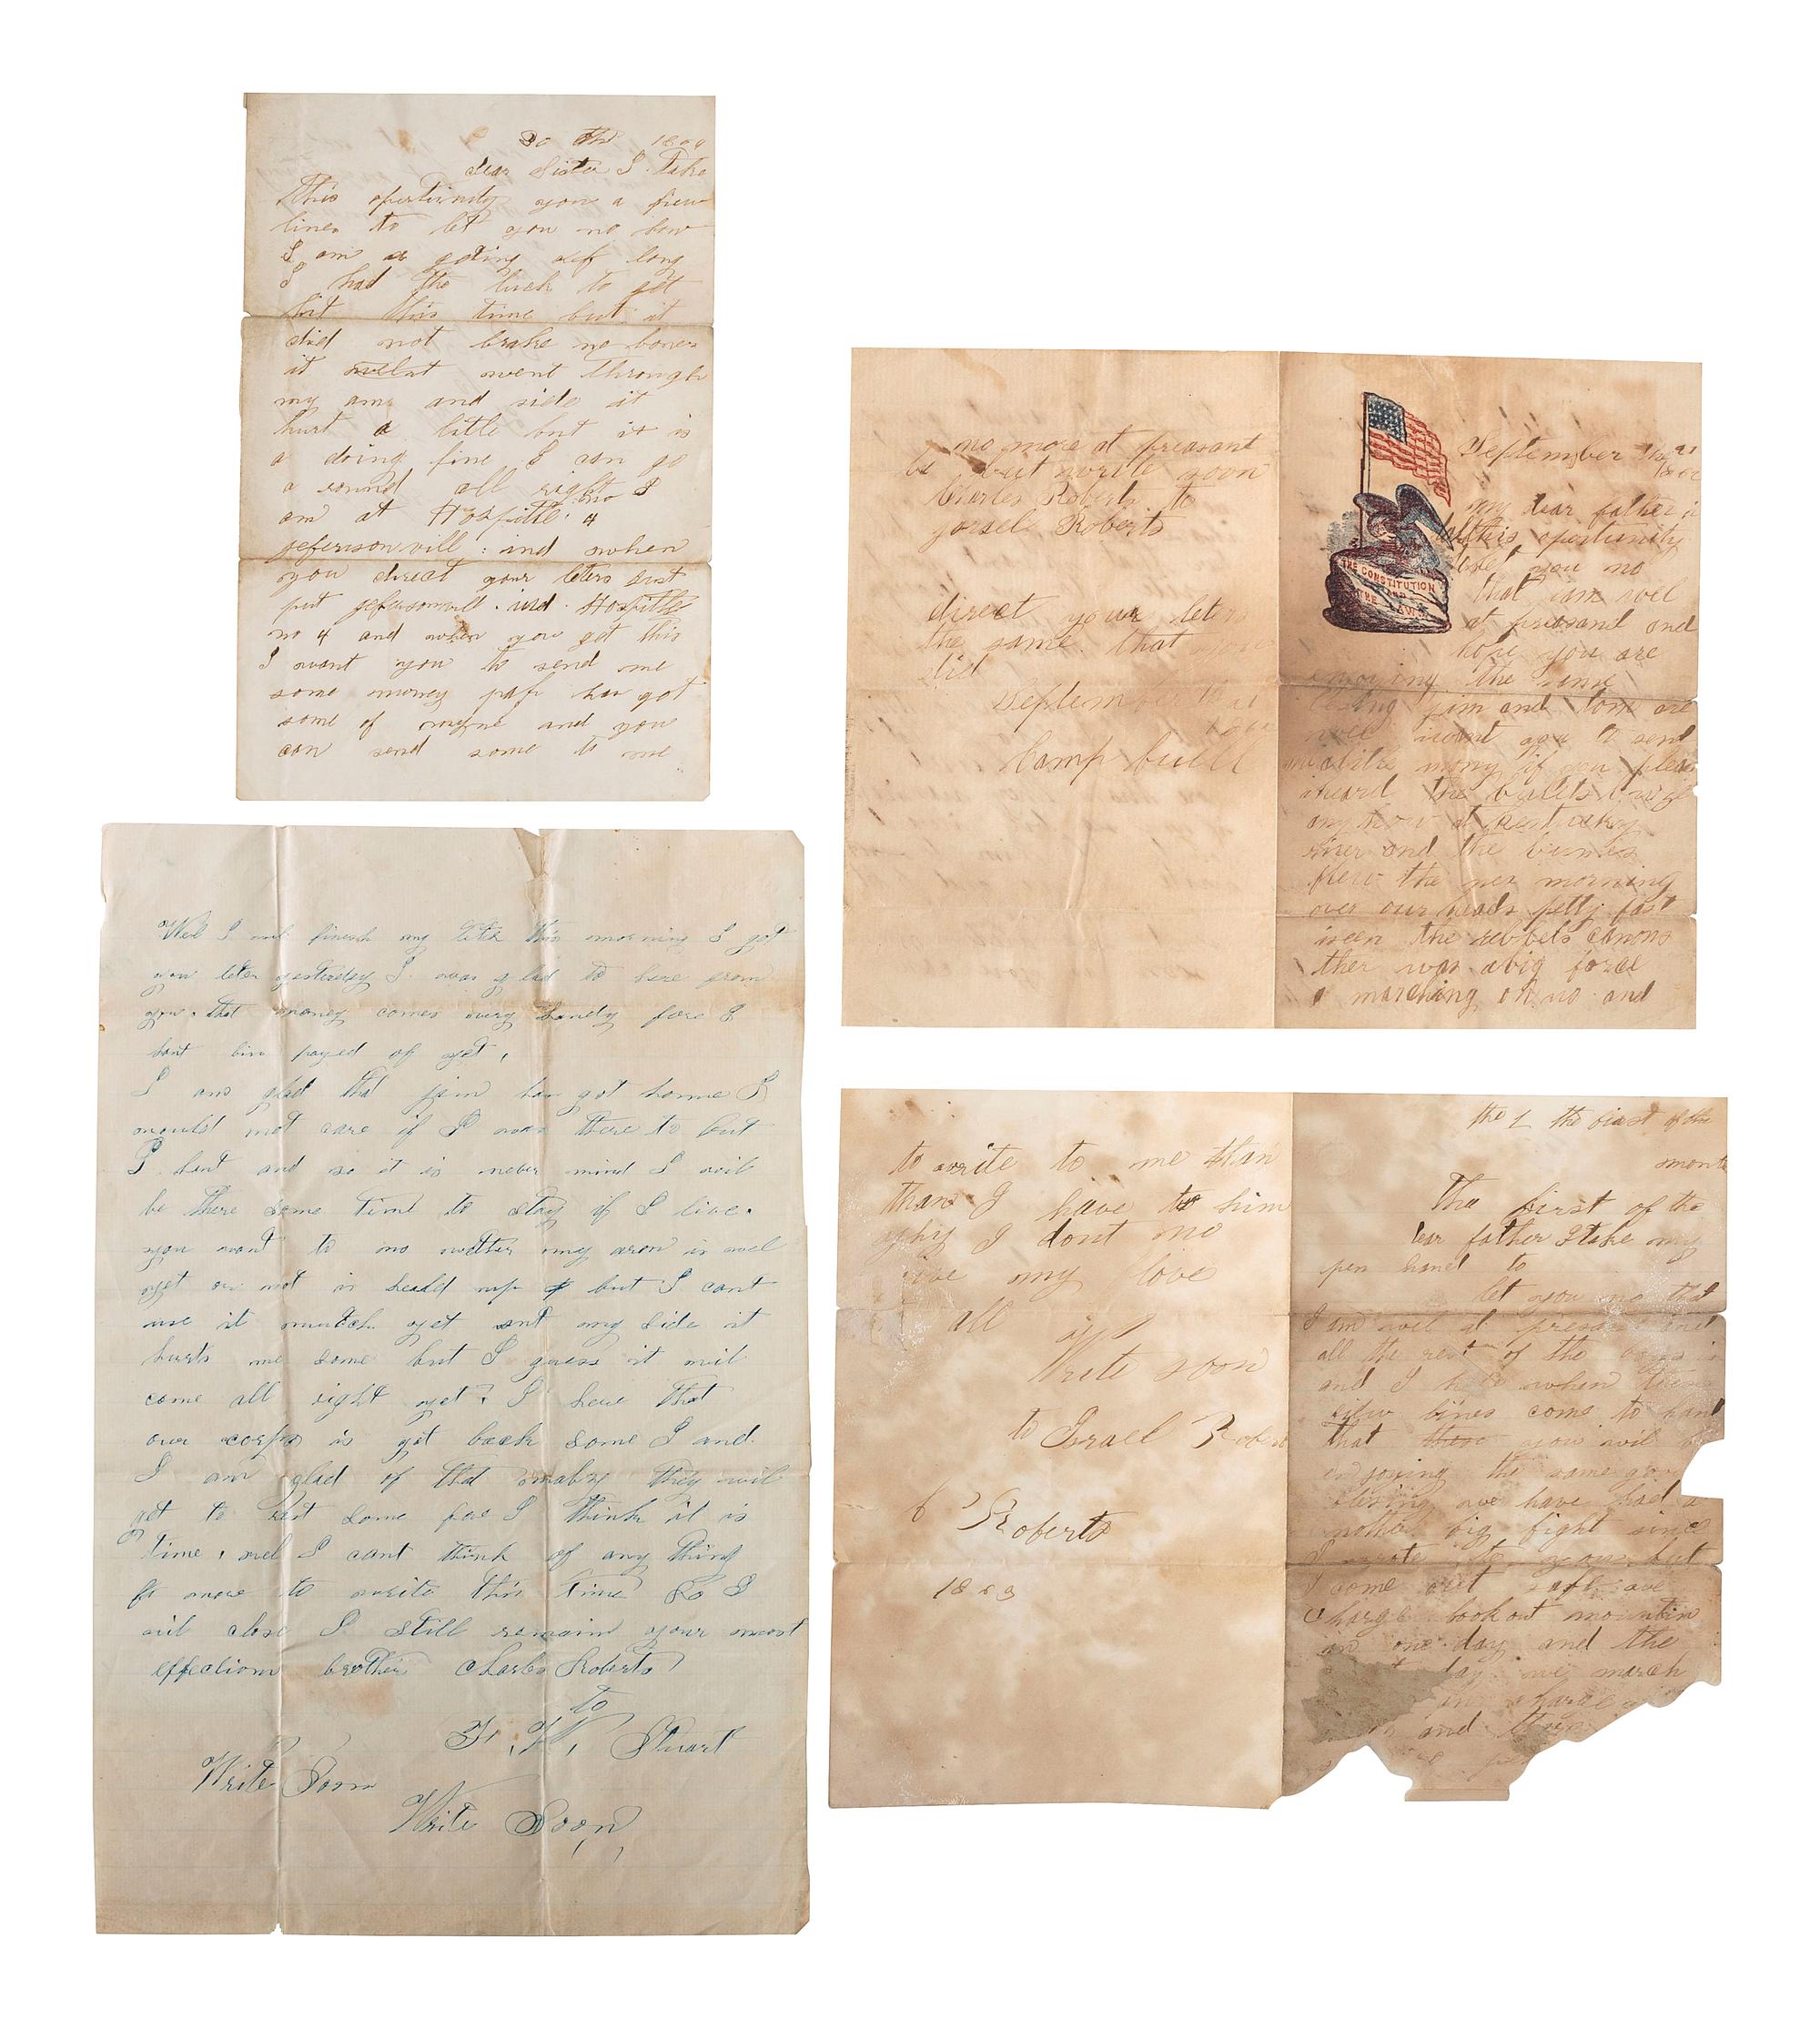 30 th 1864
dear Sister I take
this opertunity you a few
lines to let you no how
I am a goting alf long
I had the luck to get
hit this time but it
did not brake no bones
it went through
my arm and side it
hurt a little but it is
a doing fine I can go
a round all right I
am at Hospittle no 4
jefersonvill : ind when
you direct your leters just
put jefersonvill . ind . Hospittle
no 4 and when you get this
I want you to send me
some money pap has got
some of mysne and you
can send some to me
Wel I wil finish my leter this morning I got
you leter yesterdey I was glad to here from
you. that money comes very handy fore I
hant bin payed of yet,
I am glad that jim has got home I
would not care if I was there to but
I hant and so it is never mind I wil
be there some time to stay if I live.
you want to no wether my arm is wel
yet or not is heald up but I cant
use it mutch yet ant my side it
hurts me some but I guess it wil
come all right yet. I hear that
our corps is got back some I and
I am glad of that maby they wil
get to rest some fore I think it is
time, wel I cant think of any thing
fo more to write this time So I
wil close I still remain your most
effections brother Charles Roberts
to
W, Stuart
Write Soon
Write Soon
no more at preasant
but write soon
Charles Roberts to
yorsel Roberts
direct your leters
the same that you
did
September th 21
1862
Camp buell
September the 21
1862
my dear father i
this opertunity
you no
that iam wel
at preasant and
hope you are
enjoying the same
blesing jim and tom are
well iwant you to send
me alitle mony if you pleas
iheard the bulets
any how at Kentuckey
river and the bumbs
flew the nex morning
over our heads petty fast
iseen the rebbels canons
ther was abig force
a marching on us and
THE CONSTITUTION
AND
THE LAWS
to write to me than
than I have to him
why I dont no
give my love
to all
Write soon
to Israel Robert
C Roberts
1863
the 1 the first of the
month
The first of the
Dear father I take my
pen hand to
let you no that
I am wel at presant and
all the rest of the boys is
and I hope when these
fiew lines come to hand
that you wil be
enjoying the same good
blesing we have had a
nother big fight since
I wrote to you but
I come out safe we
charge lookout mountin
in one day and the
day we march
charge
and